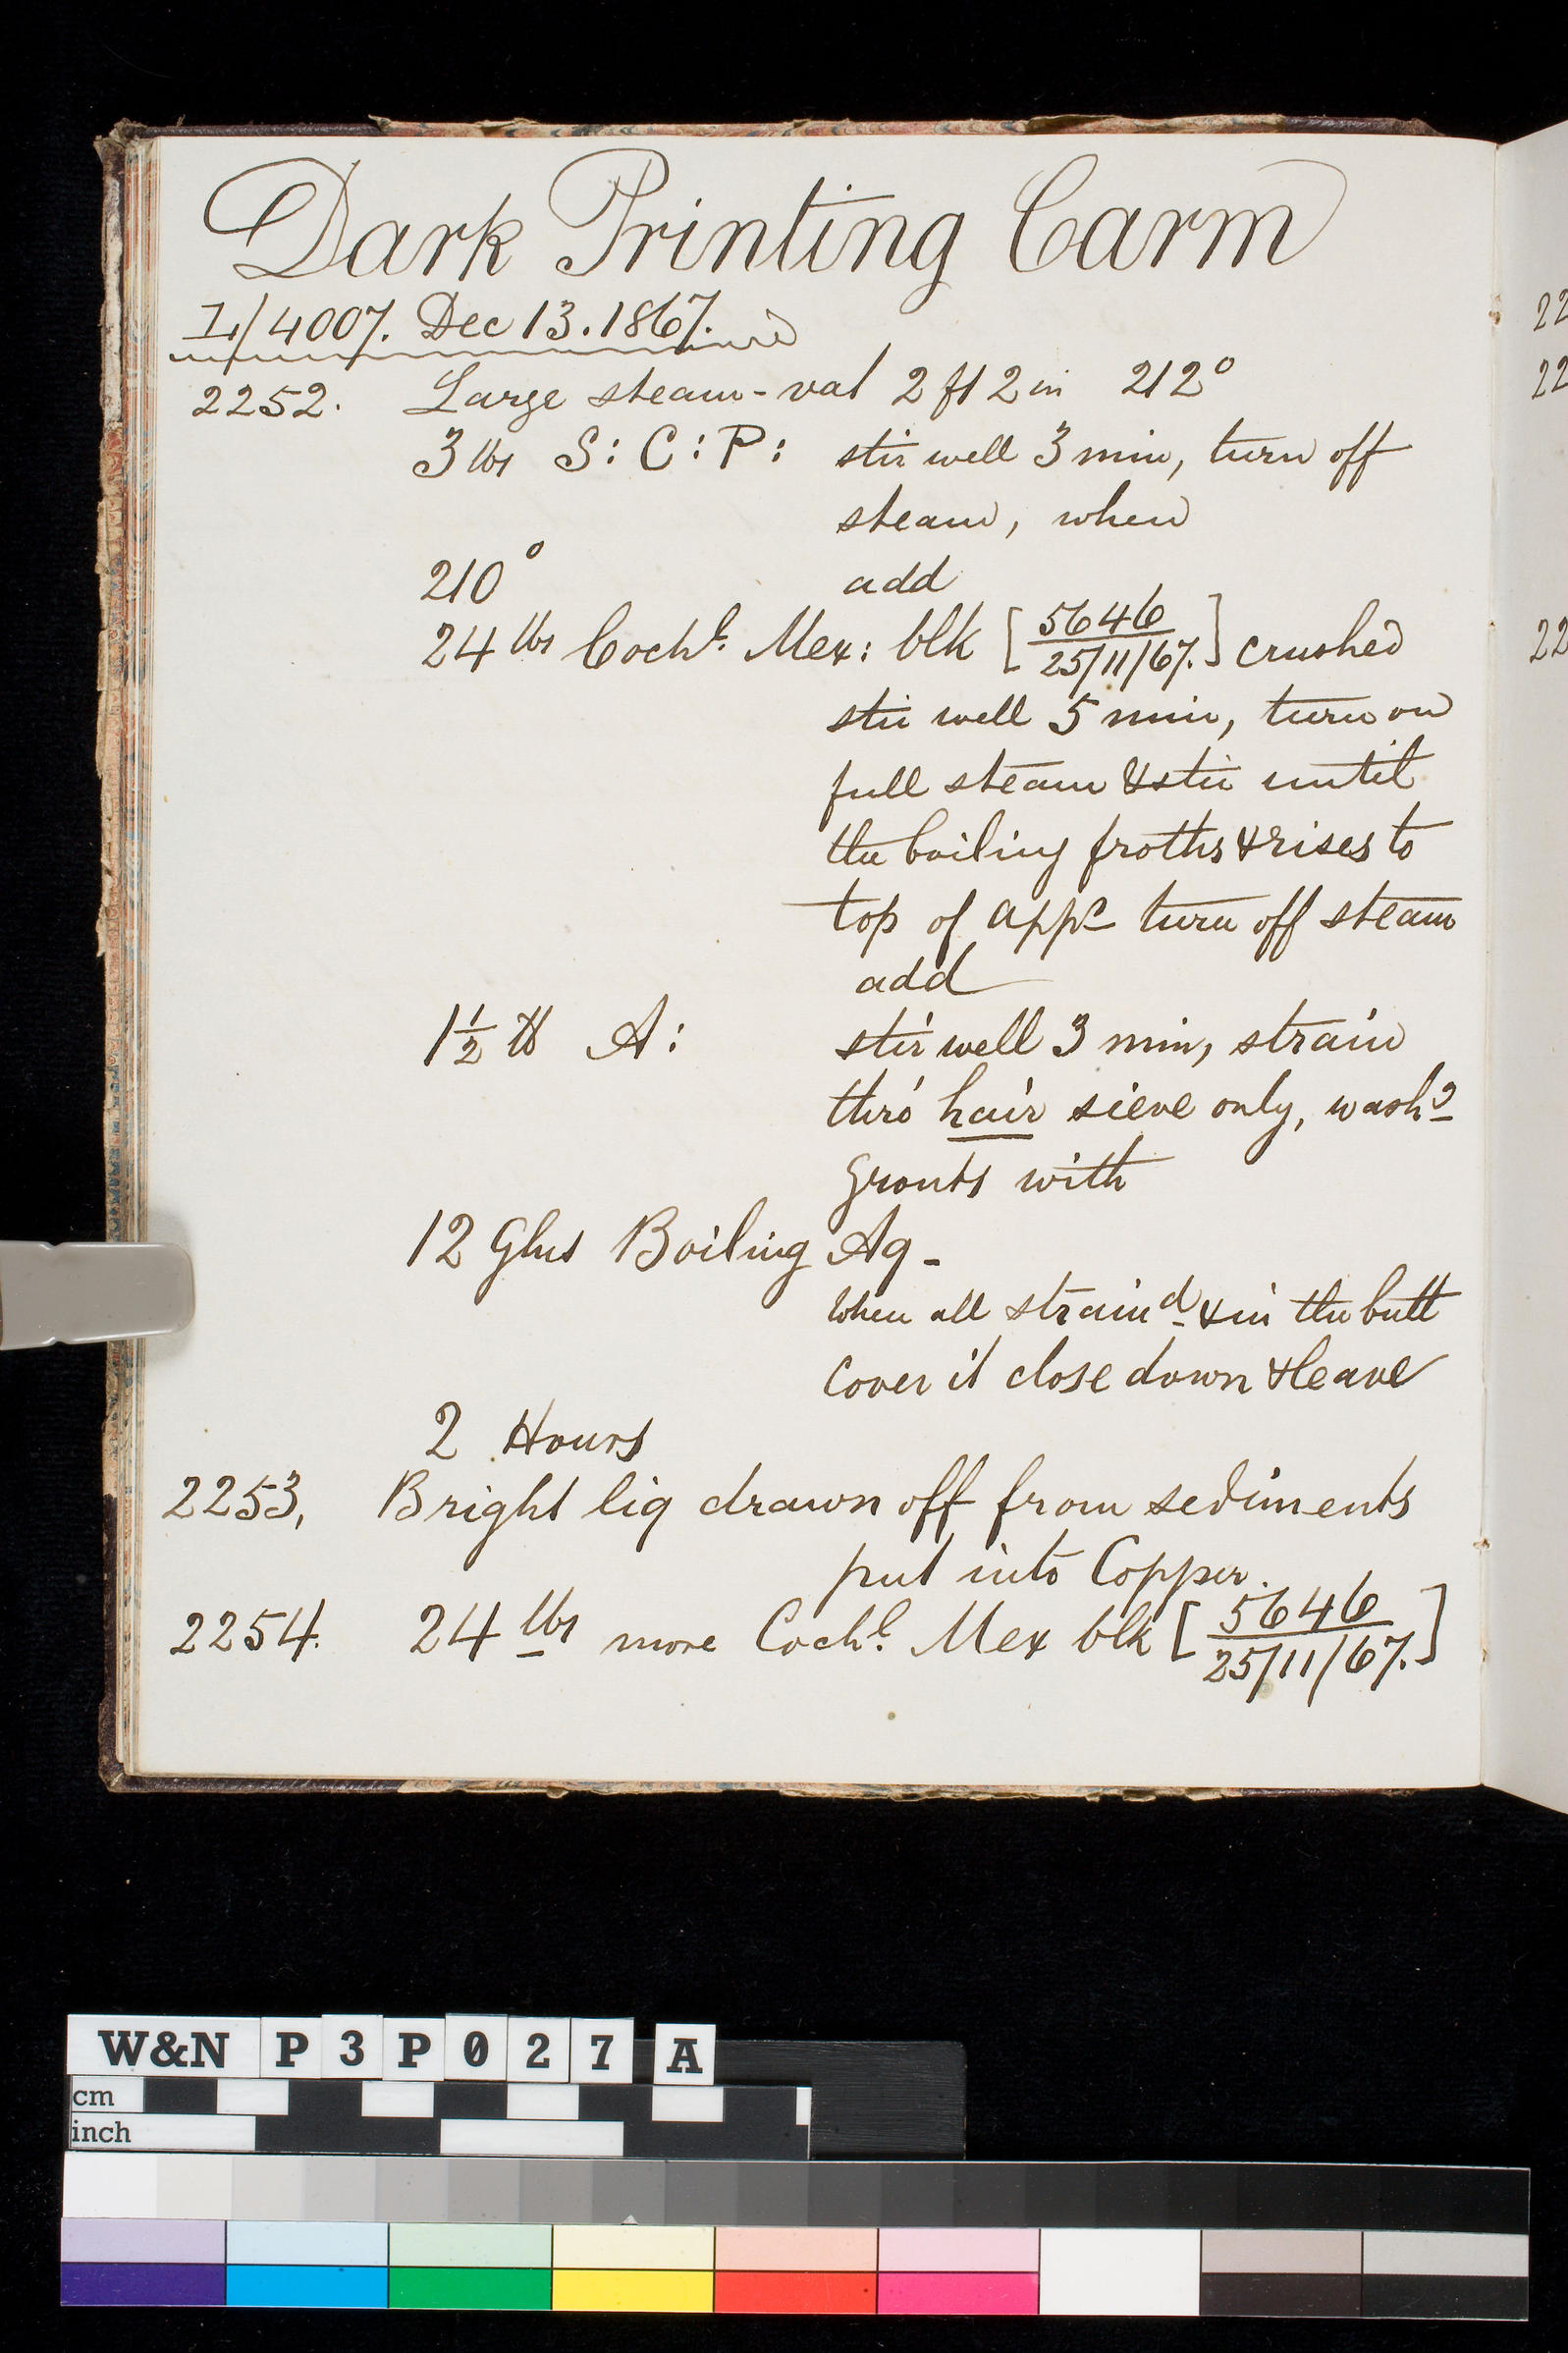 Dark Printing Carm
L/4007. Dec 13. 1867.
2252. Large steam-vat 2 ft 2 in 212°
3 lbs S: C: P: stir well 3 min, turn off
steam, when
210° add
24 lbs Cochl. Mex: blk [5646/25/11/67.] crushed
stir well 5 min, turn on
full steam & stir until
the boiling froths & rises to
top of appc turn off steam
add
1½ ℔ A: stir well 3 min, strain
thro' hair sieve only, washg
grouts with
12 Glns Boiling Aq-
When all straind & in the butt
cover it close down & leave
2 Hours
2253, Bright liq drawn off from sediments
put into Copper.
2254. 24 lbs more Cochl. Mex blk [5646/25/11/67.]
22
22
22
W&N P3P027 A
cm
inch